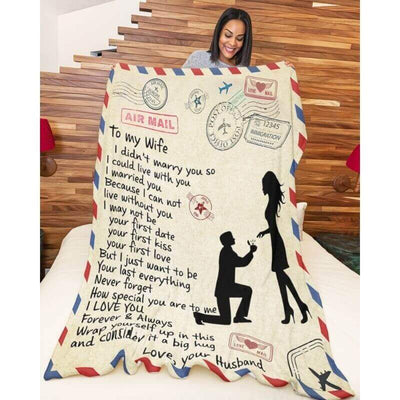 LOVE MAIL
AIR MAIL
POST OFFICE
12345
IMMIGRATION
to my Wife
I didn't marry you so
I could live with you
I married you
Because I can not
live without you
I may not be
your first date
your first kiss
your first love
But I just want to be
Your last everything
Never forget
How special you are to me
I LOVE YOU
Forever & Always
Wrap yourself up in this
and consider it a big hug
Love, your Husband
LOVE MAIL